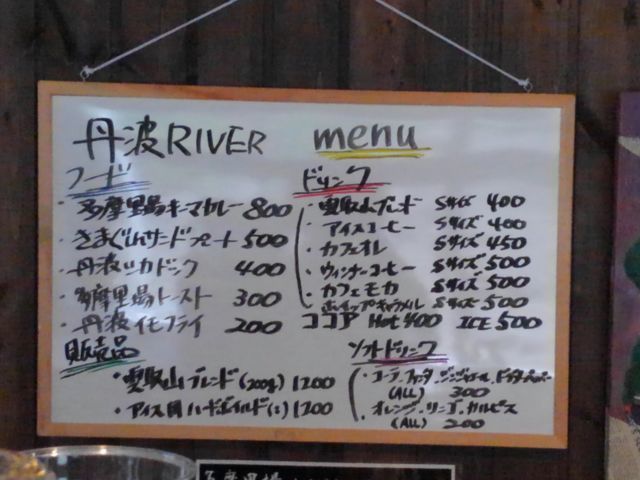 丹波RIVER menu
フード
・多摩里場キーマカレー 800
・きまぐれサンドプレート 500
・丹波ツカドック 400
・多摩里場トースト 300
・丹波イモフライ 200
販売品
・雲取山ブレンド(200g) 1200
・アイス用ハードボイルド(〃) 1200
ドリンク
・雲取山ブレンド Sサイズ 400
・アイスコーヒー Sサイズ 400
・カフェオレ Sサイズ 450
・ウィンナーコーヒー Sサイズ 500
・カフェモカ Sサイズ 500
・ホイップキャラメル Sサイズ 500
ココア Hot 400 ICE 500
ソフトドリンク
・コーラ・ファンタ・ジンジャエール・ドクターペッパー
(ALL) 300
・オレンジ・リンゴ・カルピス
(ALL) 200